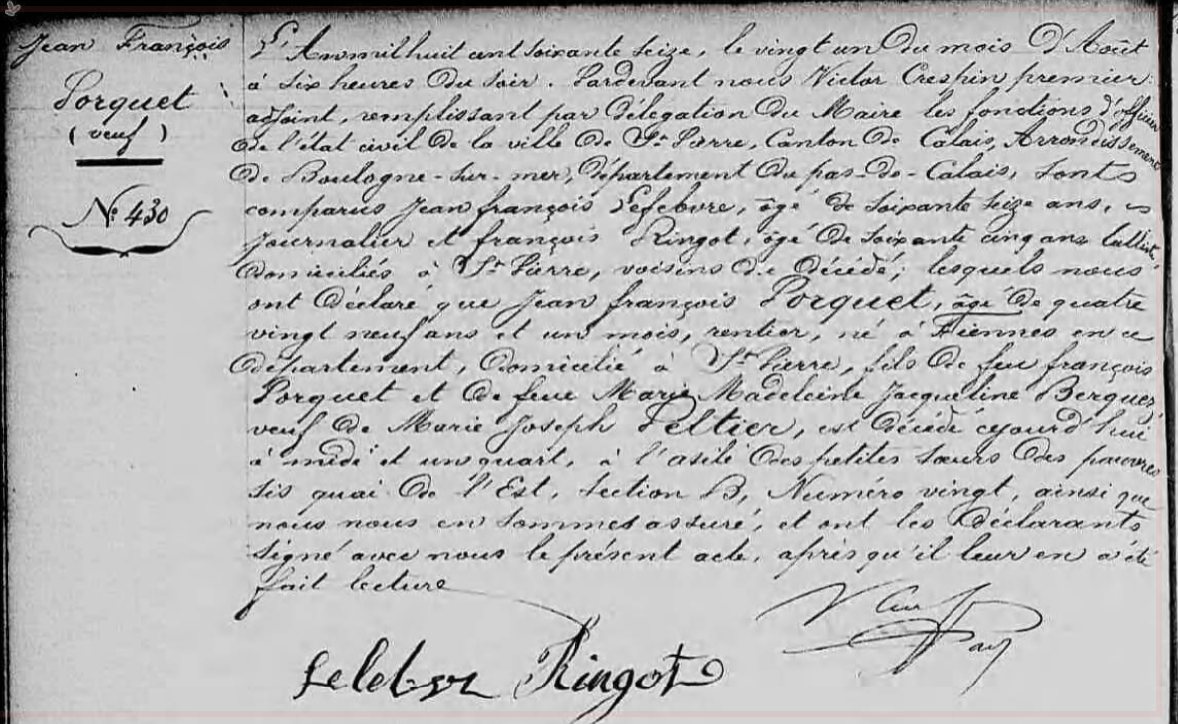 Jean François
Porquet
(veuf)
N° 430
L'An mil huit cent soixante seize, le vingt un du mois d'Août
à six heures du soir. Pardevant nous Victor Crespin premier
adjoint, remplissant par délégation du Maire les fonctions d'officier
de l'état civil de la ville de St Pierre, Canton de Calais, Arrondissement
de Boulogne-sur-mer, département du pas-de-Calais, sont
comparus Jean françois Lefebvre, âgé de soixante seize ans,
journalier et françois Ringot, âgé de soixante cinq ans
domiciliés à St Pierre, voisins du décédé; lesquels nous
ont déclaré que Jean françois Porquet, âgé de quatre
vingt neuf ans et un mois, rentier, né à Fiennes en ce
département, domicilié à St Pierre, fils de feu françois
Porquet et de feue Marie Madeleine Jacqueline Berquez,
veuf de Marie Joseph Peltier, est décédé cejourd'hui
à midi et un quart, à l'asile des petites sœurs des pauvres
sis quai de l'Est, section B, Numéro vingt, ainsi que
nous nous en sommes assuré, et ont les déclarants
signé avec nous le présent acte, après qu'il leur en a été
fait lecture
Ringot